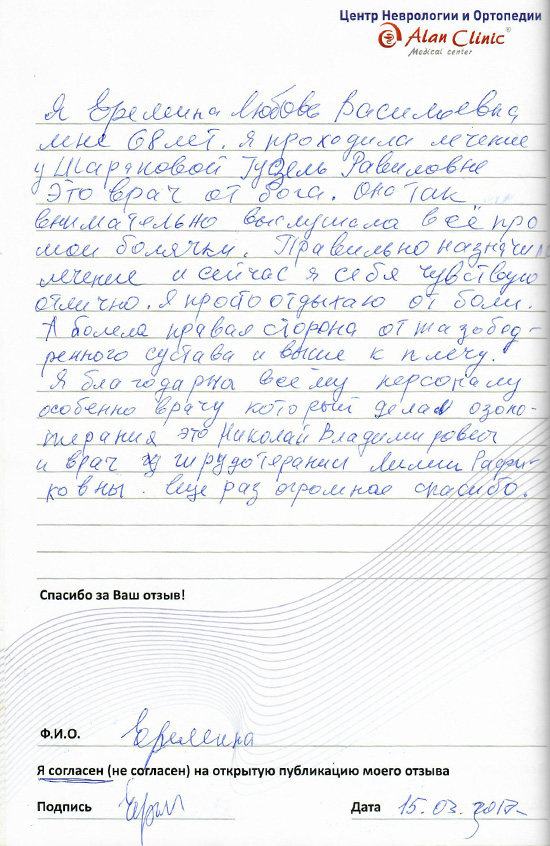 Центр Неврологии и Ортопедии
Alan Clinic®
Medical center
Я Еремина Любовь Васильевна
мне 68 лет. Я проходила лечение
у Шаряковой Гузель Равиловне
Это врач от бога. Она так
внимательно выслушала всё про
мои болячки. Правильно назначила
лечение и сейчас я себя чувствую
отлично. Я просто отдыхаю от боли.
А болела правая сторона от тазобед-
ренного сустава и выше к плечу.
Я благодарна всему персоналу
особенно врачу который делал озоно-
терапия это Николай Владимирович
и врач гирудотерапии Лилии Рафи-
ковны. Еще раз огромное спасибо.
Спасибо за Ваш отзыв!
Ф.И.О. Еремина
Я согласен (не согласен) на открытую публикацию моего отзыва
Подпись Дата 15.03.2017